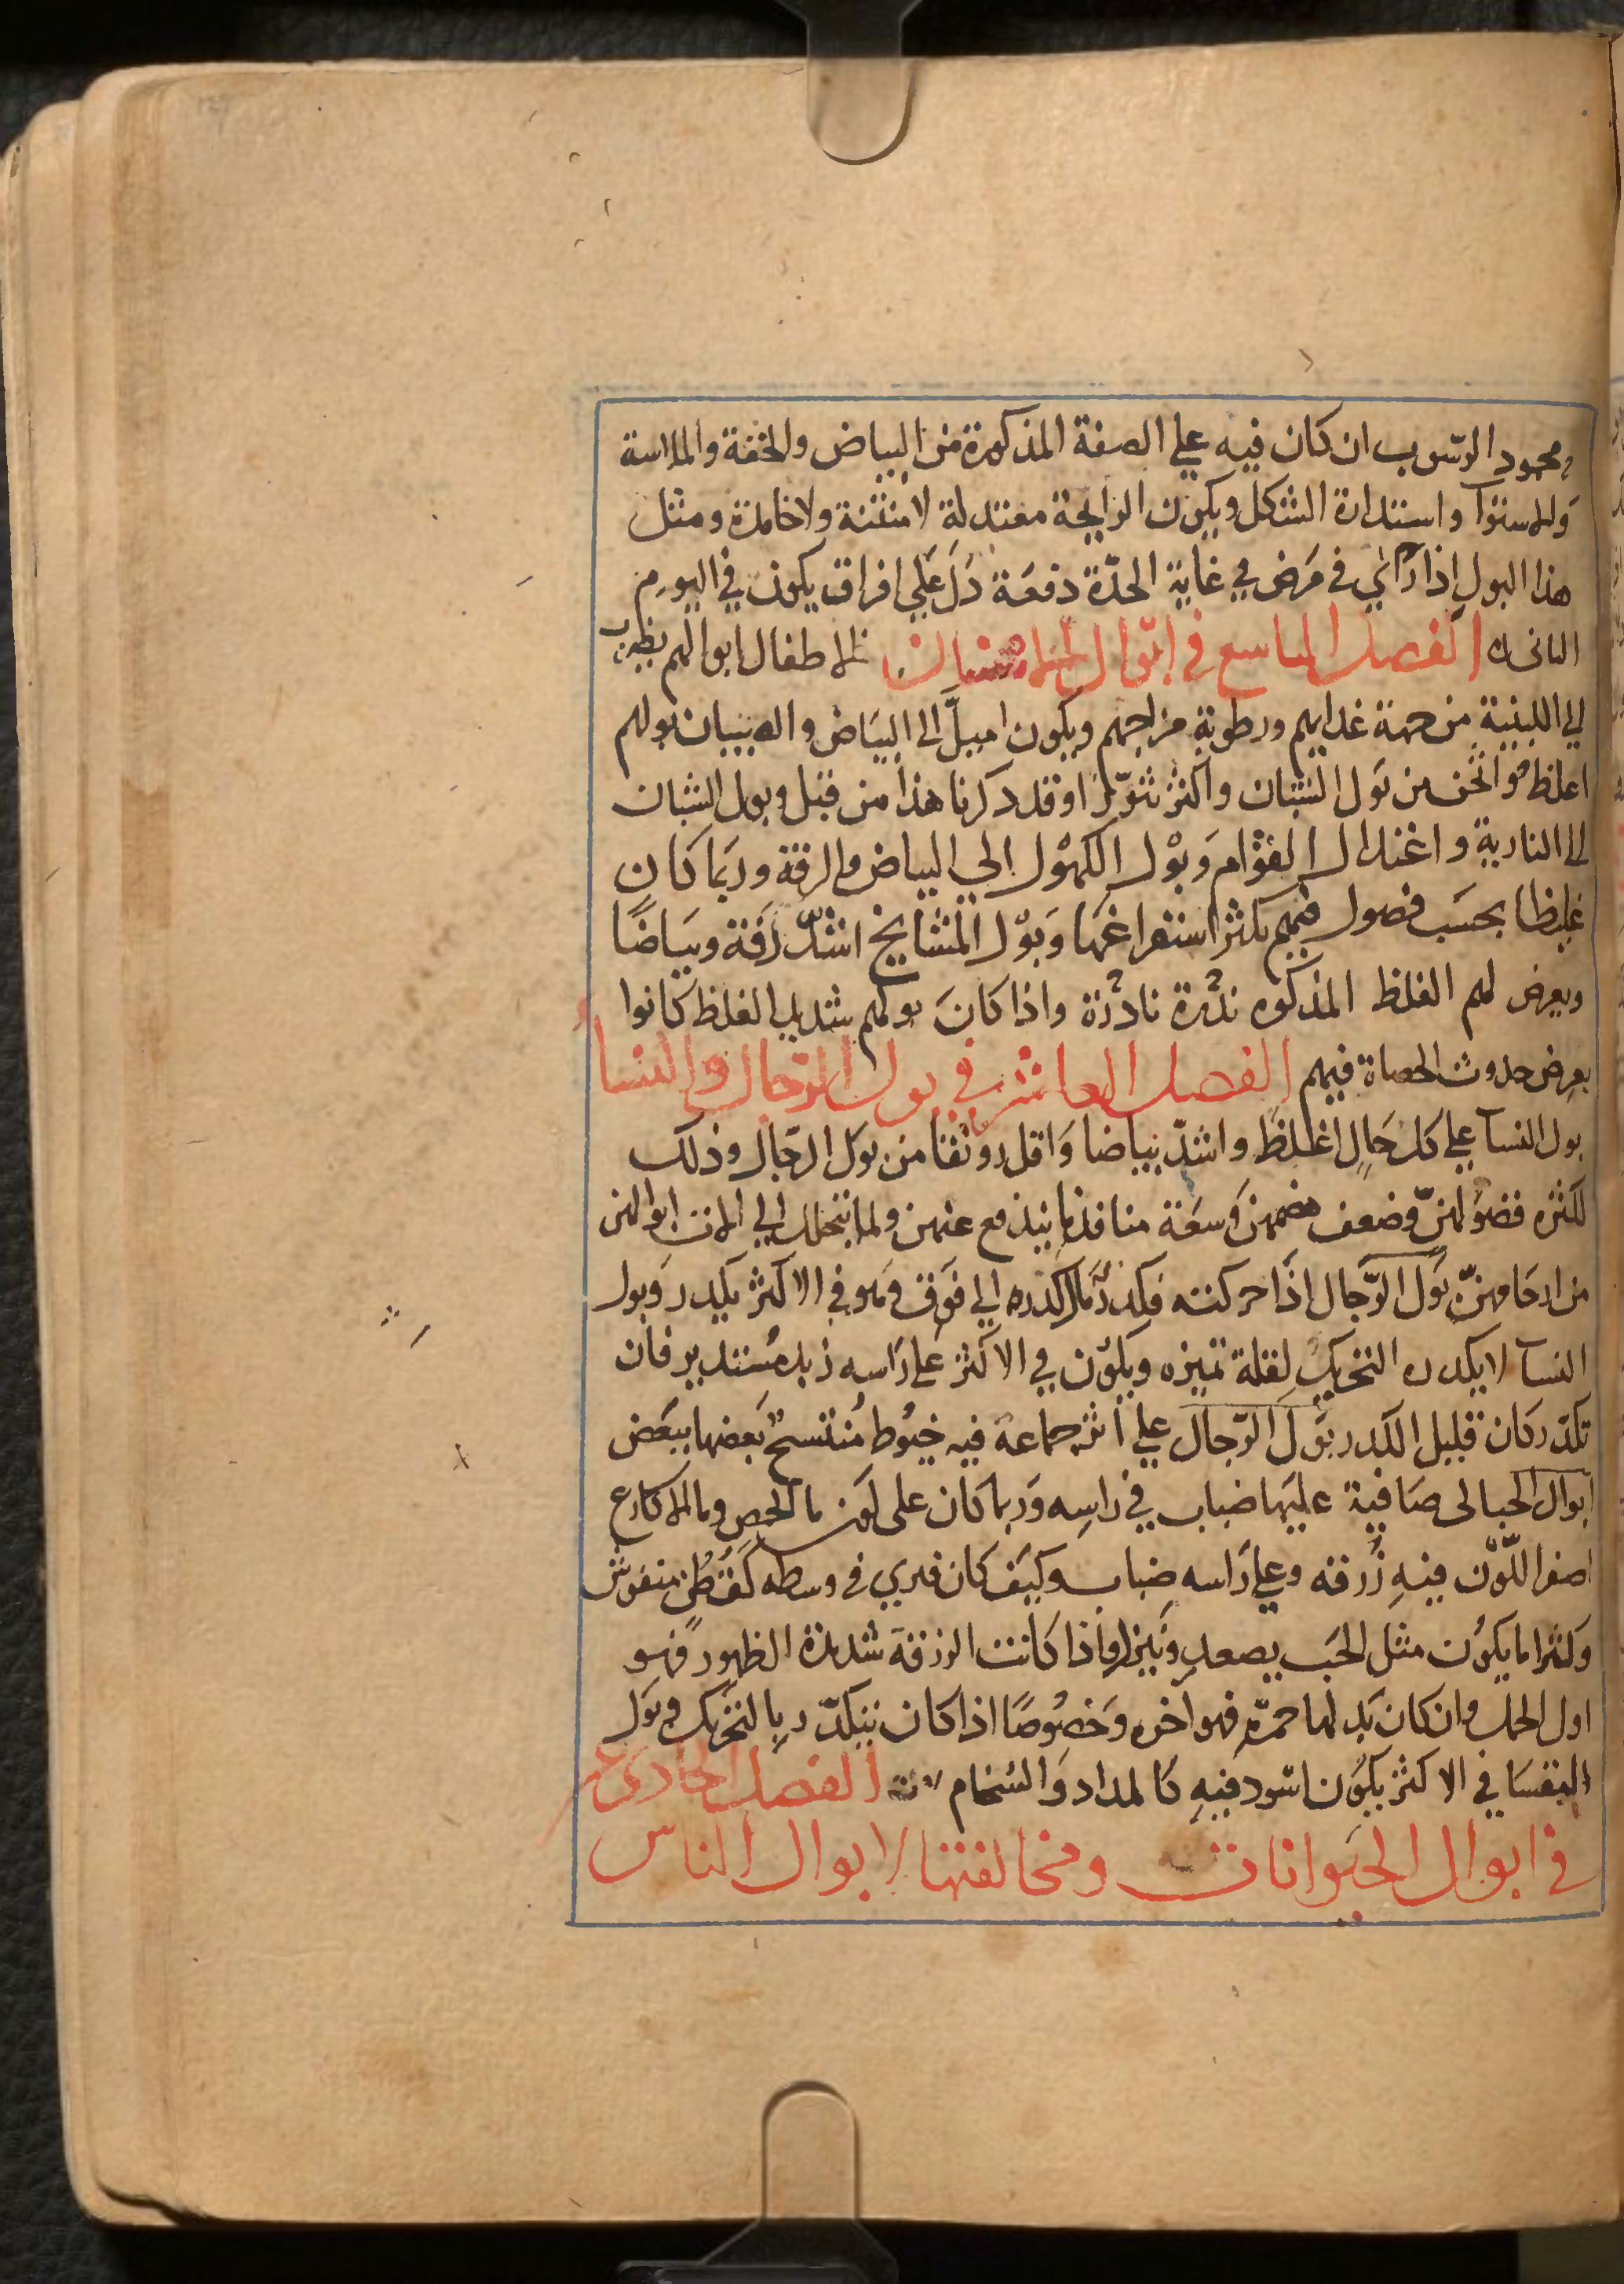 ومحمود الرسوب ان كان فيه علي الصفة المذكورة من البياض والخفة والملاسة
والاستوآ واستدارة الشكل ويكون الرايحة معتدلة لا منتنة ولا خامدة ومثل
هذا البول اذا رأي في مرض في غاية الحدّة دفعة دلّ علي افراق يكون في اليوم
الثانى الفصل التاسع في ابوال الاسنان الاطفال ابوالهم يضرب
الي اللبنية من جهة غدايهم ورطوبة مزاجهم ويكون اميل الي البياض والصبيان بولهم
اغلظ واثخن من بول الشبان واكثر تثوّرا وقد ذكرنا هذا من قبل وبول الشبان
الي النارية واعتدال القوام وبول الكهول الي البياض والرقة وربما كان
غليظا بحسب فضول فيهم يكثر استفراغها وبول المشايخ اشدّ رقة وبياضا
ويعرض لهم الغلظ المذكور ندرة نادرة واذا كان بولهم شديد الغلظ كانوا
بعرض حدوث الحصاة فيهم الفصل العاشر في بول الرجال والنسا
بول النسآ علي كل حال اغلظ واشدّ بياضا واقل رونقا من بول الرجال وذلك
لكثره فضولهنّ وضعف هضمهن وسعة منافذ ما يندفع عنهن ولما يتحلل الي الات ابوالهن
من ارحامهنّ بول الرّجال اذا حركته فكدر مال كدره الي فوق وهو في الاكثر يكدر وبول
النسآ لا يكدره التحريك لقلة تميزه ويكون في الاكثر علي راسه زبد مستدير فان
تكدّر كان قليل الكدر بول الرّجال علي اثر جماعة فيه خيوط منتسج بعضها ببعض
ابوال الحبالى صافية عليها ضباب في راسه وربما كان على لون ما الحمص وما الاكارع
اصفر اللّون فيه زرقه وعلي راسه ضباب وكيف كان فيري في وسطه كقطن منفوش
وكثيرا ما يكون مثل الحب يصعد وينزل واذا كانت الزرقة شديدة الظهور فهو
اول الحمل وان كان بدلها حمرة فهو اخره وخصوصا اذا كان يتكدّر بالتحريك وبول
النفسا في الاكثر يكون اسود فيه كالمداد والسخام الفصل الحادي عشر
في ابوال الحيوانات ومخالفتها لابوال الناس